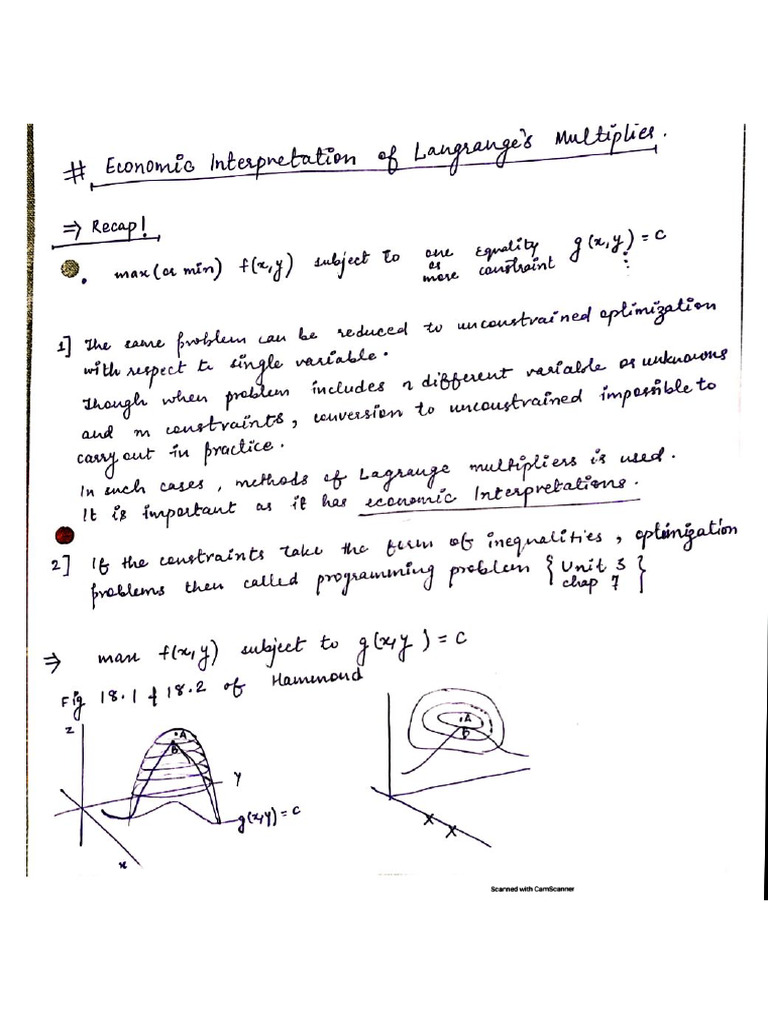 # Economic Interpretation of Langrange's Multiplier.
⇒ Recap!
• max (or min) f(x,y) subject to one or more equality constraint g(x,y) = c
1] The same problem can be reduced to unconstrained optimization
with respect to single variable.
Though when problem includes n different variable or unknowns
and m constraints, conversion to unconstrained impossible to
carry out in practice.
In such cases, methods of Lagrange multipliers is used.
It is important as it has economic Interpretations.
2] If the constraints take the form of inequalities, optimization
problems then called programming problem { Unit 3
chap 7 }
⇒ max f(x,y) subject to g(x,y) = c
Fig 18.1 & 18.2 of Hammond
z
A
B
y
g(x,y) = c
x
A
B
x
x
Scanned with CamScanner